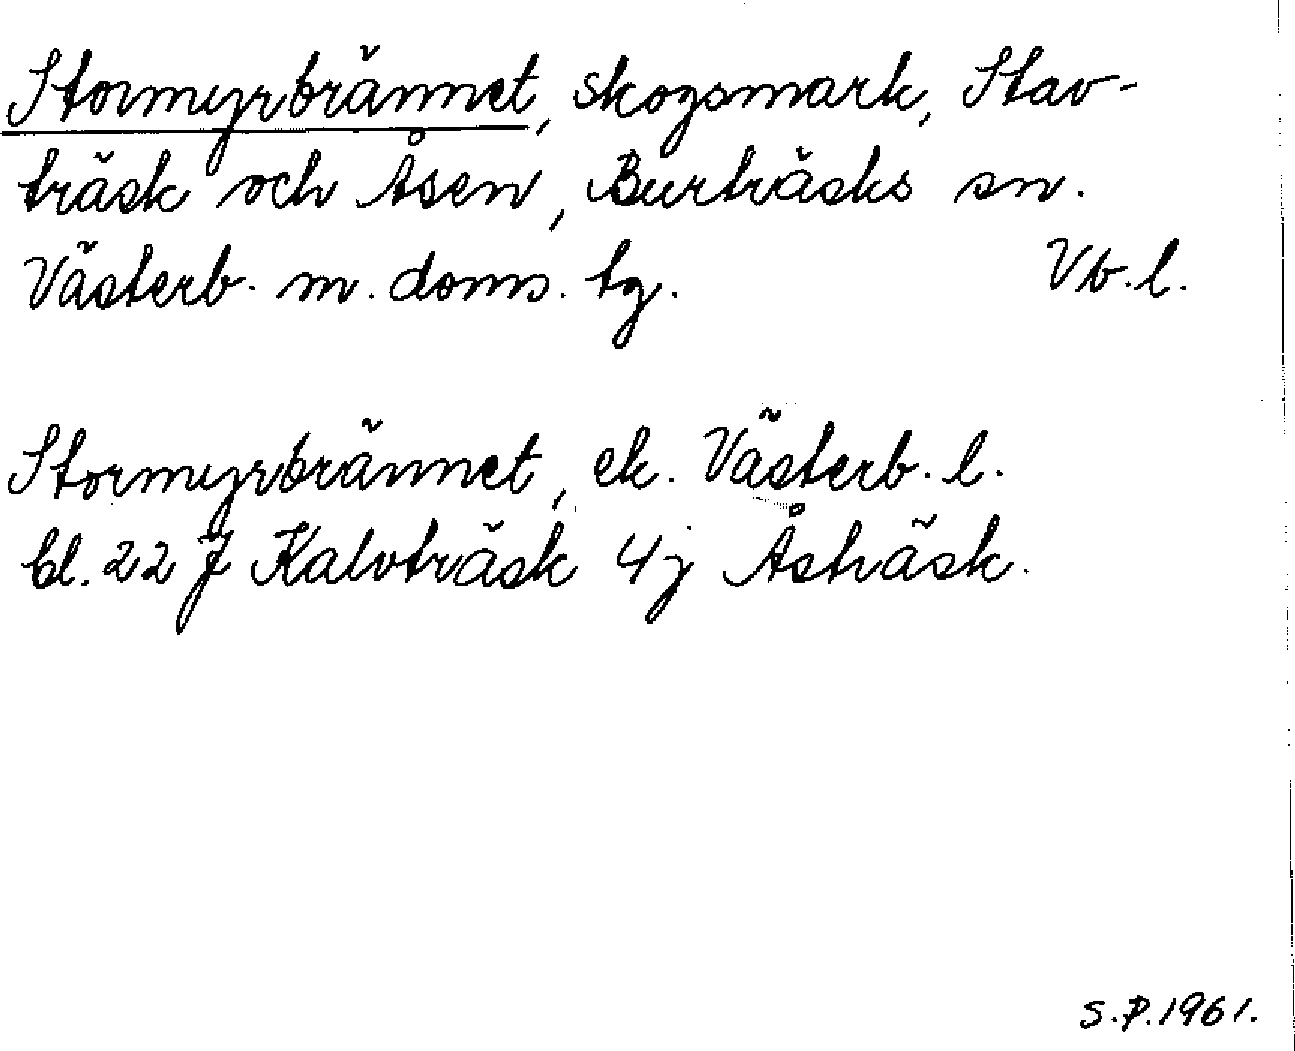 Stormyrbrännet, skogsmark, Stav-
träsk och Åsen, Burträsks sn.
Västerb. m. doms. tg. Vb. l.
Stormyrbrännet, ek. Västerb. l.
bl. 22 J Kalvträsk 4j Åsträsk.
S.P.1961.